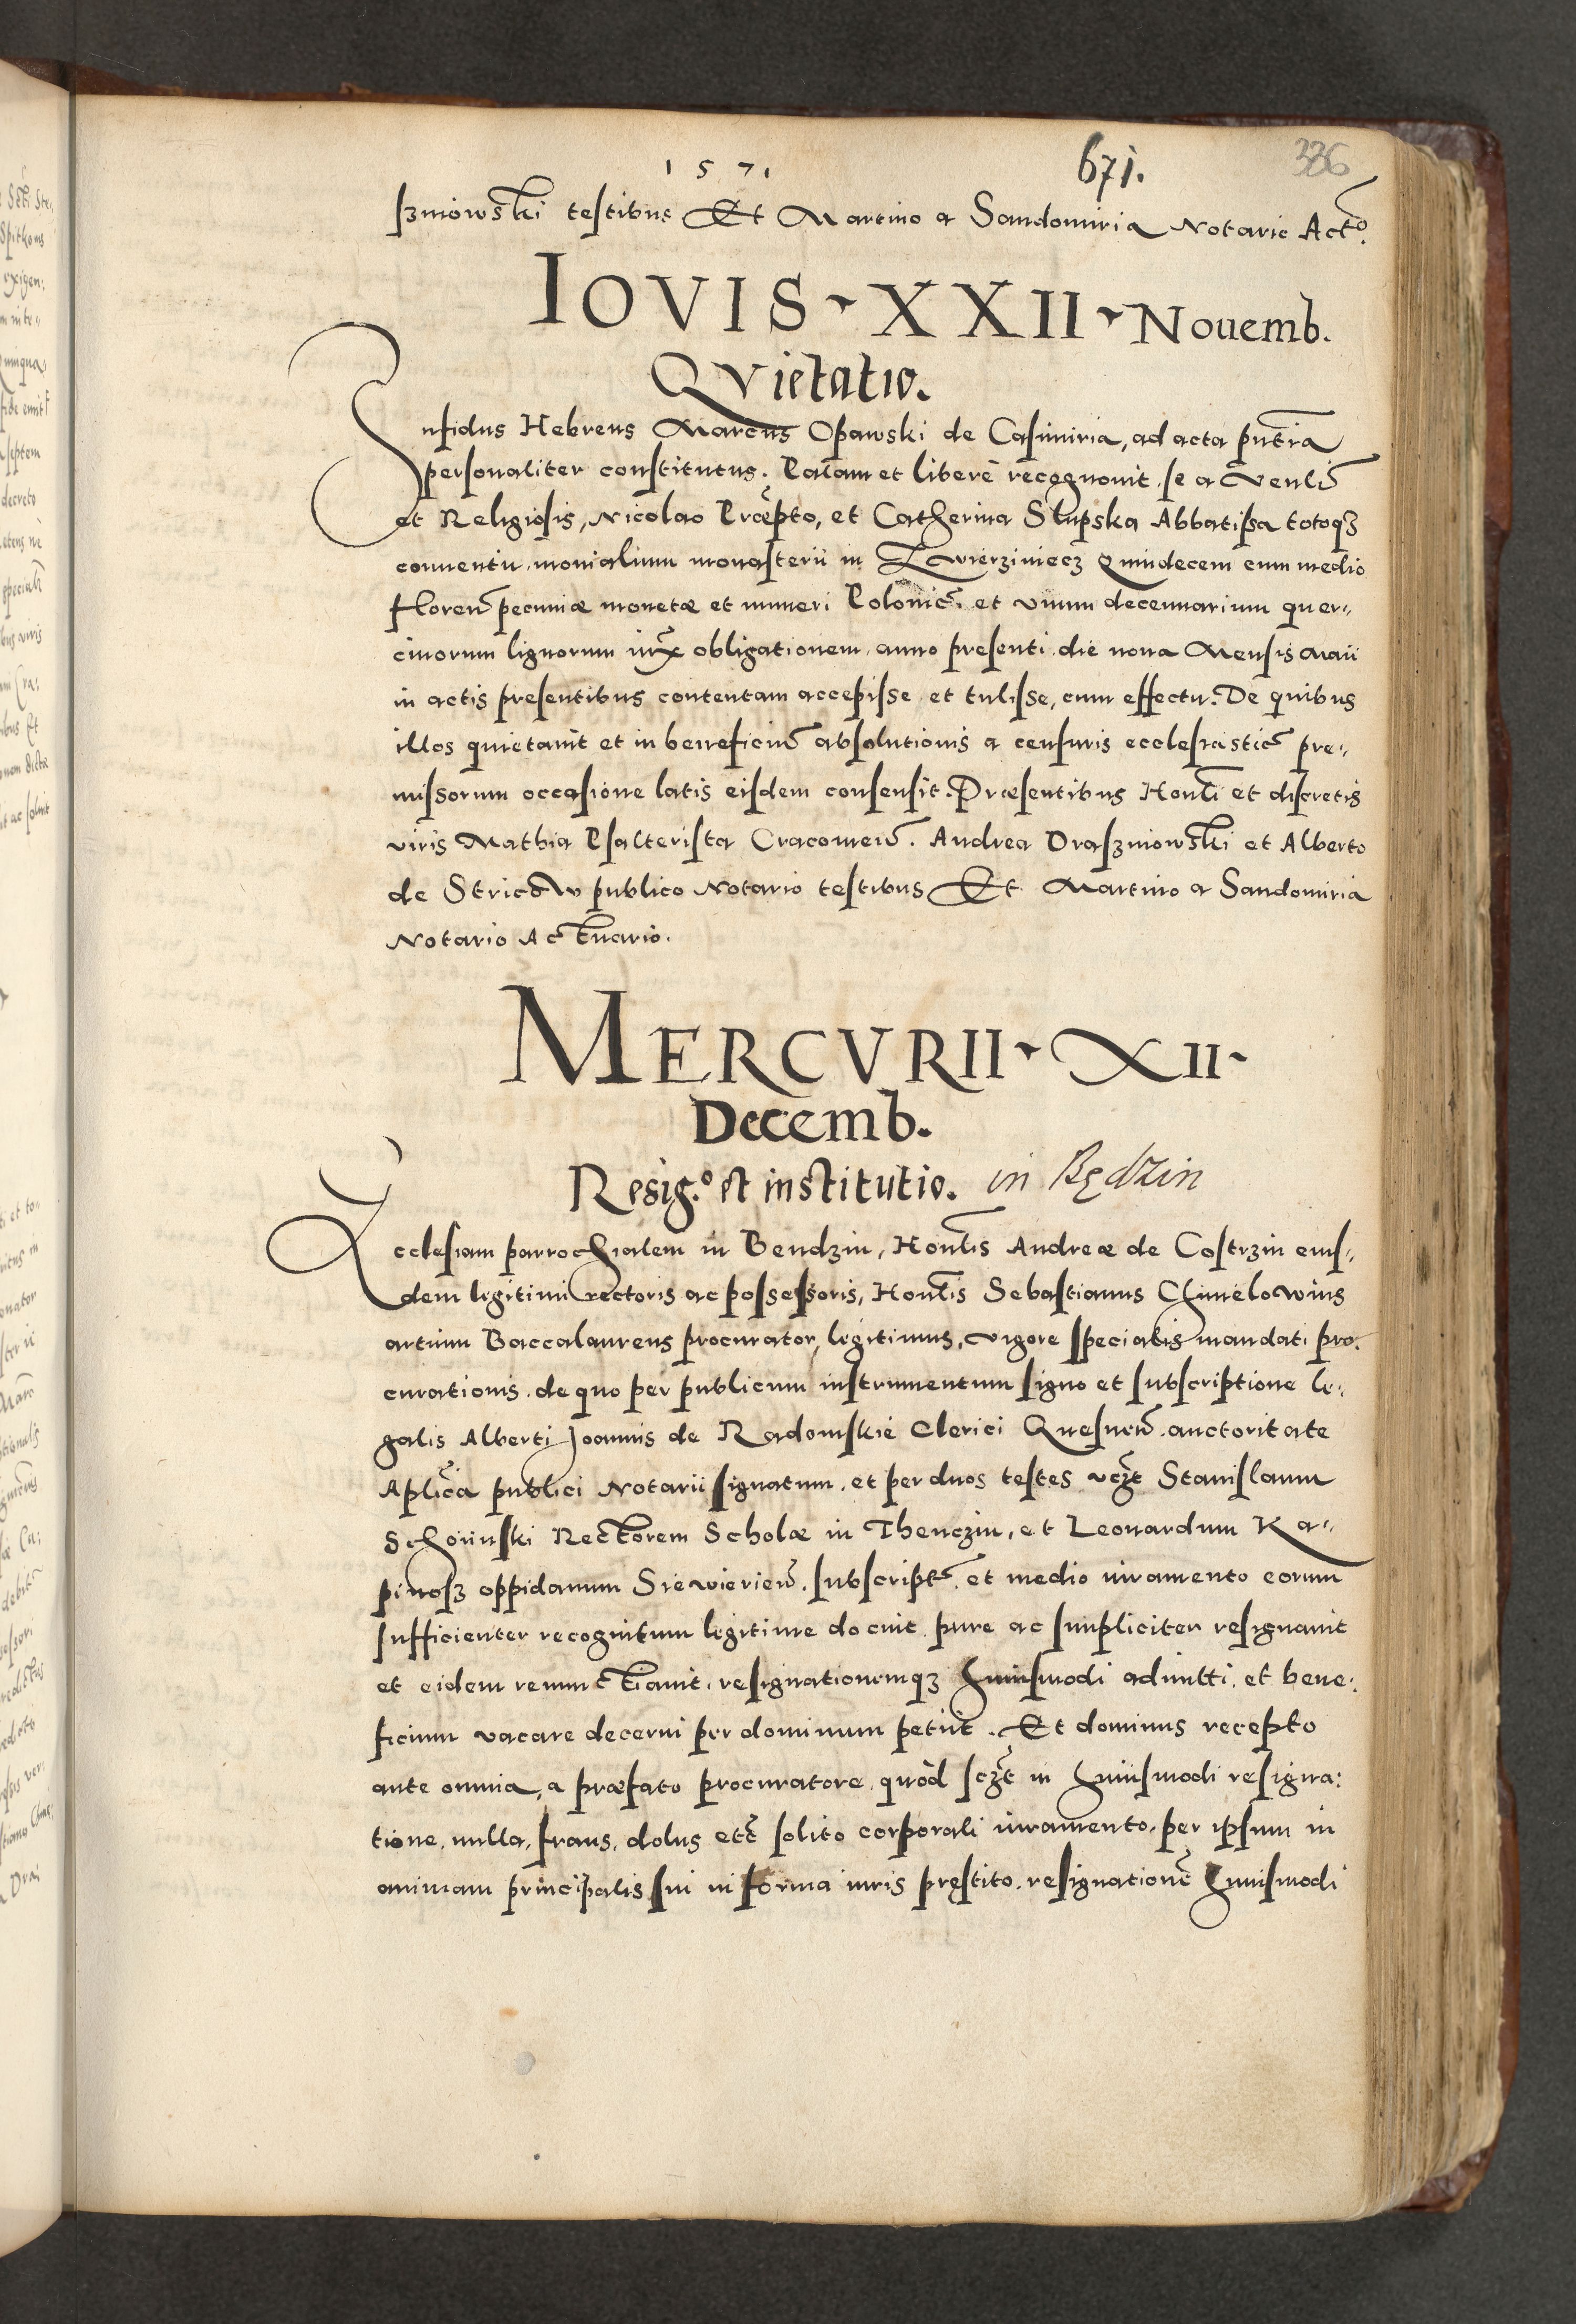 1571
671.
336
szniowski testibus Et Martino a Sandomiria Notario Acto.
IOVIS XXII Nouemb.
QVietatio.
Infidus Hebreus Marcus Opawski de Casimiria, ad acta pñtia
personaliter constitutus. Palam et liberè recognouit, se a Venli
et Religiosis, Nicolao Præpto, et Catherina Slupska Abbatissa totoqz
conuentu monialium monasterii in Zwierziniecz Quindecem cum medio
floren pecuniæ monetæ et numeri Polonic. et vnum decennarium quer-
cinorum lignorum iux obligationem anno presenti die nona Mensis Maii
in actis presentibus contentam accepisse et tulisse, cum effectu. De quibus
illos quietauit et in beneficiu absolutionis a censuris ecclesiastic pre-
missorum occasione latis eisdem consensit. Præsentibus Honli et discretis
viris Mathia Psalterista Cracouien. Andrea Draszniowski et Alberto
de Stricow publico Notario testibus Et Martino a Sandomiria
Notario Actuario.
MERCVRII XII
Decemb.
Resig.º et institutio. in Będzin
Ecclesiam parrochialem in Bendzin, Honlis Andreæ de Costrzin eius-
dem legitimi rectoris ac possessoris, Honlis Sebastianus Chmielowius
artium Baccalaureus procurator legitimus, vigore specialis mandati pro:
curationis. de quo per publicum instrumentum signo et subscriptione le:
galis Alberti Joannis de Radomskie Clerici Gnesnen. auctoritate
Aplica publici Notarii signatum. et per duos testes vczt Stanislaum
Schoiinski Rectorem Scholæ in Thenczin, et Leonardum Ka-
pinosz oppidanum Siewierien. subscript. et medio iuramento eorum
sufficienter recognitum legitime docuit, pure ac simpliciter resignauit
et eidem renunctiauit, resignationemqz huiusmodi admitti, et bene:
ficium vacare decerni per dominum petiit. Et dominus recepto
ante omnia, a præfato procuratore, quòd sczt in huiusmodi resigna:
tione, nulla, fraus, dolus etc solito corporali iuramento, per ipsum in
animam principalis sui in forma iuris pręstito. resignatione huiusmodi